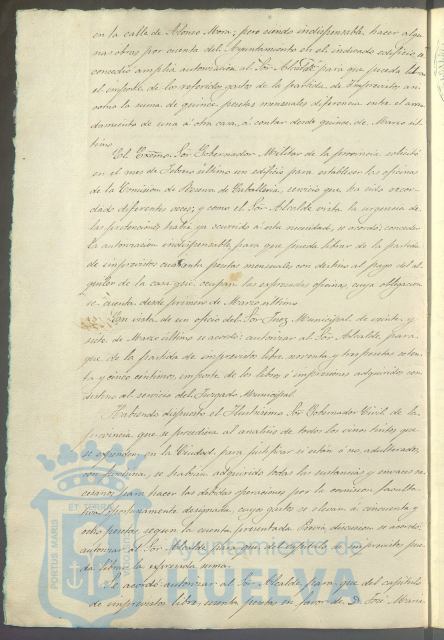 en la calle de Alonso Mora; pero siendo indispensable hacer algu-
nas obras por cuenta del Ayuntamiento en el indicado edificio, se
concedió amplia autorización al Sor Alcalde para que pueda librar
el importe de los referidos gastos de la partida de Imprevistos, así
como la suma de quince pesetas mensuales diferencia entre el arren-
damiento de una á otra casa, á contar desde quince de Marzo úl-
timo.
El Excmo. Sor Gobernador Militar de la provincia solicitó
en el mes de Febrero último un edificio para establecer las oficinas
de la Comisión de Reserva de Caballería, servicio que ha sido recor-
dado diferentes veces; y como el Sor Alcalde vista la urgencia de
las pretenciones había ya ocurrido á esta necesidad, se acordó: conceder
la autorización indispensable, para que pueda librar de la partida
de imprevistos cuarenta pesetas mensuales con destino al pago del al-
quiler de la casa que ocupan las expresadas oficinas, cuya obligación
se cuenta desde primero de Marzo último.
Con vista de un oficio del Sor Juez Municipal de veinte y
siete de Marzo último se acordó: autorizar al Sor Alcalde, para
que de la partida de imprevistos libre, noventa y tres pesetas seten-
ta y cinco céntimos, importe de los libros é impresiones adquiridos con
destino al servicio del Juzgado Municipal.
Habiendo dispuesto el Ilustrísimo Sor Gobernador Civil de la
provincia, que se procediera al analisis de todos los vinos tintos que
se expenden en la Ciudad, para justificar si están ó no, adulterados
con fuchina, se habían adquirido todas las sustancias y envaces ne-
cesarios para hacer las debidas operaciones por la comision faculta-
tiva oportunamente designada, cuyos gastos se elevan á cincuenta y
ocho pesetas, segun la cuenta presentada. Previa discusion se acordó:
autorizar al Sor Alcalde para que del capítulo de imprevistos pue-
da librar la expresada suma.
Se acordó: autorizar al Sor Alcalde, para que del capítulo
de imprevistos libre, cuenta pesetas en favor de D. José María
PORTUS MARIS
ET TERRÆ
Ayuntamiento de
HUELVA